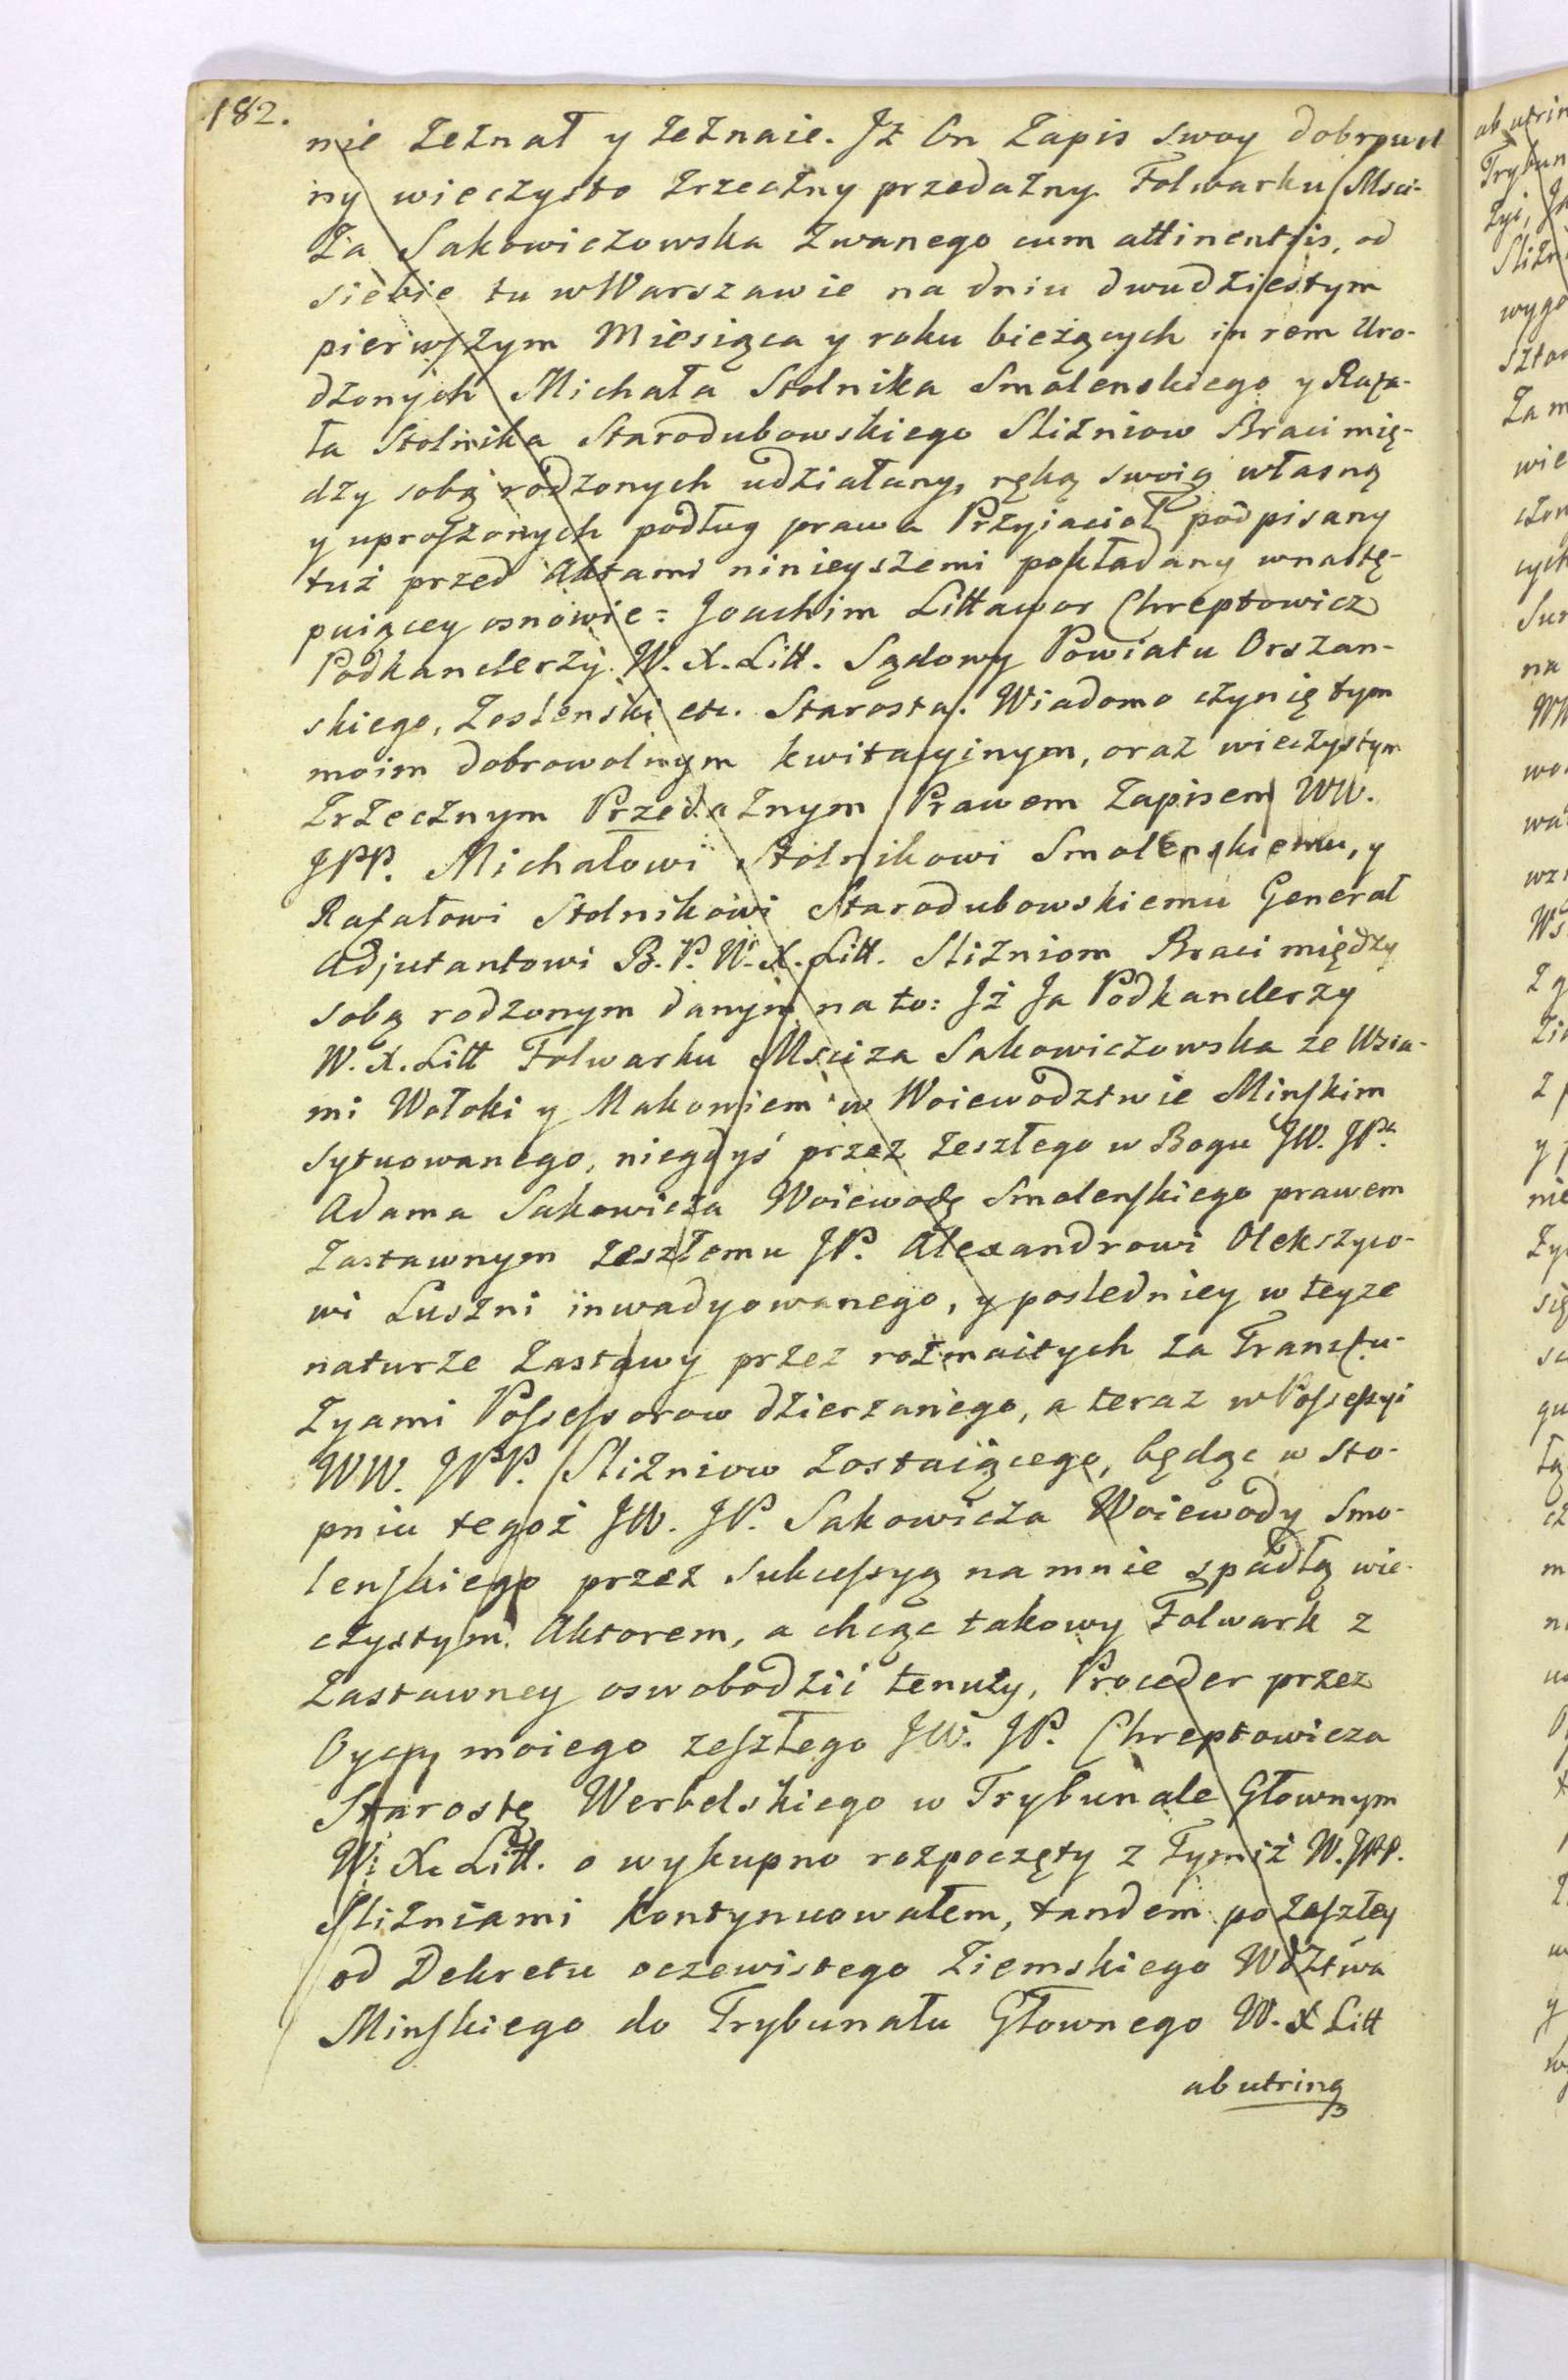 182.
nie zeznał y zeznaie. Jż On Zapis swoy dobrowol
ny wieczysto zrzeczny przedażny Folwarku Msci-
ża Sakowiczowska zwanego cum attinentiis, od
siebie tu w Warszawie na dniu dwudziestym
pierwszym Miesiąca y roku bieżących in rem Uro-
dzonych Michała Stolnika Smolenskiego y Rafa-
ła Stolnika Starodubowskiego Sliżniow Braci mię-
dzy sobą rodzonych udziałany, ręką swoią własną
y uproszonych podług prawa Przyiacioł podpisany
tuż przed Aktami ninieyszemi pokładany wnastę-
puiącey osnowie: Joachim Littawor Chreptowicz
Podkanclerzy W. X. Litt. Sądowy Powiatu Orszan-
skiego, etc. Starosta. Wiadomo czynię tym
moim dobrowolnym kwitacyinym, oraz wieczystym
Zrzecznym Przedażnym Prawem Zapisem WW.
JPP. Michałowi Stolnikowi Smolenskiemu, y
Rafałowi Stolnikowi Starodubowskiemu Generał
Adjutantowi B. P. W. X. Litt. Sliżniom Braci między
sobą rodzonym danym na to: Jż Ja Podkanclerzy
W. X. Litt Folwarku Msciza Sakowiczowska ze Wsia-
mi Wołoki y Makoniem w Woiewodztwie Minskim
sytuowanego, niegdyś przez zeszłego w Bogu JW. JPa
Adama Sakowicza Woiewodę Smolenskiego prawem
zastawnym zeszłemu JP. Alexandrowi Olekszyco-
wi Luszni inwadyowanego, y posledniey w teyze
naturze zastawy przez rozmaitych za Transfu-
zyami Possessorow dzierzaniego, a teraz w Possessyi
WW. JPP. Sliżniow zostaiącego, będąc w sto-
pniu tegoż JW. JP. Sakowicza Woiewody Smo-
lenskiego przez sukcessyą na mnie spadłą wie-
czystym Aktorem, a chcąc takowy Folwark z
zastawney oswobodzić tenuty, Proceder przez
Oyca moiego zeszłego JW. JP. Chreptowicza
Starostę Werbelskiego w Trybunale Głownym
W. X. Litt. o wykupno rozpoczęty z Tymiż W. JPP.
Sliżniami kontynuowałem, tandem po zaszłey
od Dekretu oczewistego Ziemskiego Wdztwa
Minskiego do Trybunału Głownego W. X Litt
ab utrinq